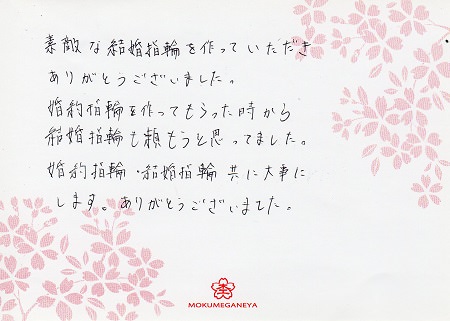 素敵な結婚指輪を作っていただき
ありがとうございました。
婚約指輪を作ってもらった時から
結婚指輪も頼もうと思ってました。
婚約指輪・結婚指輪共に大事に
します。ありがとうございました。
MOKUMEGANEYA